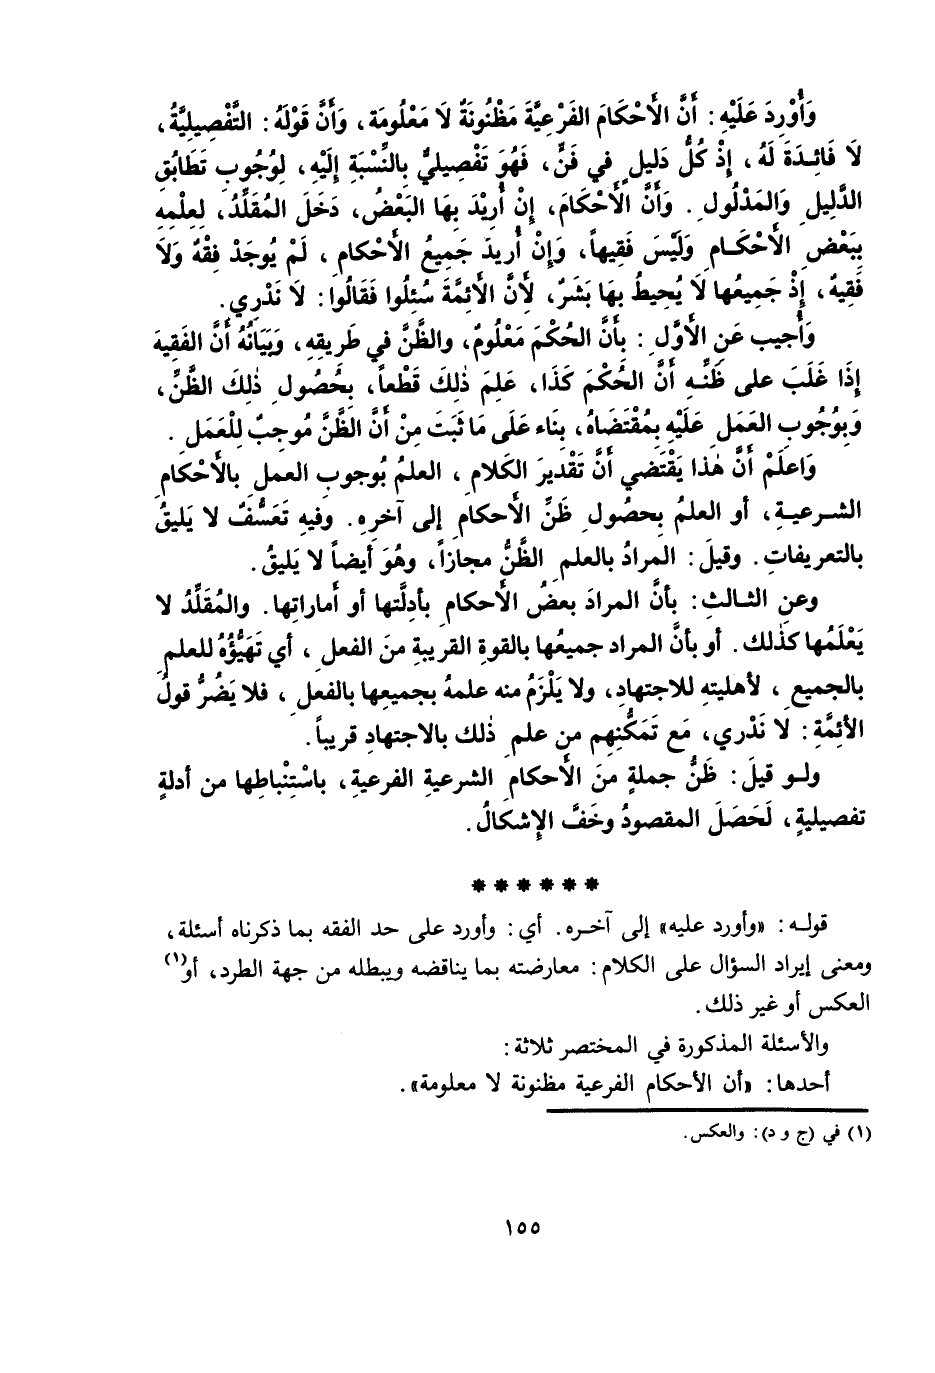 وَأُوْرِدَ عَلَيْهِ: أَنَّ الأَحْكَامَ الفَرْعِيَّةَ مَظْنُونَةٌ لاَ مَعْلُومَة، وَأَنَّ قَوْلَهُ: التَّفْصِيلِيَّةُ،
لاَ فَائِدَةَ لَهُ، إِذْ كُلُّ دَلِيلٍ فِي فَنٍّ، فَهُوَ تَفْصِيليٌّ بِالنِّسْبَةِ إِلَيْهِ، لِوُجُوبِ تَطَابُقِ
الدَّلِيلِ وَالمَدْلُولِ. وَأَنَّ الأَحْكَامَ، إِنْ أُرِيْدَ بِهَا البَعْضُ، دَخَلَ المُقَلِّدُ، لِعِلْمِهِ
بِبَعْضِ الأَحْكَامِ وَلَيْسَ فَقِيهاً، وَإِنْ أُرِيدَ جَمِيعُ الأَحْكامِ، لَمْ يُوجَدْ فِقْهٌ وَلاَ
فَقِيهٌ، إِذْ جَمِيعُها لاَ يُحِيطُ بِهَا بَشَرٌ، لأَنَّ الأَئِمَّةَ سُئِلُوا فَقَالُوا: لاَ نَدْرِي.
وَأُجيب عَنِ الأَوَّلِ: بأَنَّ الحُكْمَ مَعْلُومٌ، والظَّنَّ في طَرِيقِهِ، وَبَيَانُهُ أَنَّ الفَقِيهَ
إِذَا غَلَبَ على ظَنِّهِ أَنَّ الحُكْمَ كَذَا، عَلِمَ ذٰلِكَ قَطْعاً، بِحُصُولِ ذٰلِكَ الظَّنِّ،
وَبِوُجُوبِ العَمَلِ عَلَيْهِ بِمُقْتَضَاهُ، بِنَاء عَلَى مَا ثَبَتَ مِنْ أَنَّ الظَّنَّ مُوجِبٌ لِلْعَمَلِ.
وَاعلَمْ أَنَّ هٰذا يَقْتَضي أَنَّ تَقْديرَ الكَلامِ، العلمُ بُوجوبِ العملِ بالأَحْكامِ
الشرعيةِ، أو العلمُ بِحصُولِ ظَنِّ الأَحكامِ إلى آخرِهِ. وفيهِ تَعَسُّفٌ لا يَليقُ
بالتعريفاتِ. وقيلَ: المرادُ بالعلمِ الظَّنُّ مجازاً، وهُوَ أَيضاً لا يَليقُ.
وعنِ الثالثِ: بأنَّ المرادَ بعضُ الأَحكامِ بأدلَّتها أو أَماراتِها. والمُقَلِّدُ لا
يَعْلَمُها كذلك. أو بأنَّ المراد جميعُها بالقوةِ القريبةِ منَ الفعلِ، أي تَهَيُّؤُهُ للعلمِ
بالجميعِ، لأهليتهِ للاجتهادِ، ولا يَلْزَمُ منه علمهُ بجميعِها بالفعلِ، فلا يَضُرُّ قولُ
الأئِمَّةِ: لا نَدْري، مَع تَمَكُّنِهم من علمِ ذٰلك بالاجتهادِ قريباً.
ولو قيلَ: ظَنُّ جملةٍ منَ الأَحكامِ الشرعيةِ الفرعيةِ، باسْتِنْباطِها من أدلةٍ
تفصيليةٍ، لَحَصَلَ المقصودُ وخَفَّ الإِشكالُ.
******
قوله: «وأورد عليه» إلى آخره. أي: وأورد على حد الفقه بما ذكرناه أسئلة،
ومعنى إيراد السؤال على الكلام: معارضته بما يناقضه ويبطله من جهة الطرد، أو(١)
العكس أو غير ذلك.
والأسئلة المذكورة في المختصر ثلاثة:
أحدها: «أن الأحكام الفرعية مظنونة لا معلومة».
(١) في (ج و د): والعكس.
١٥٥